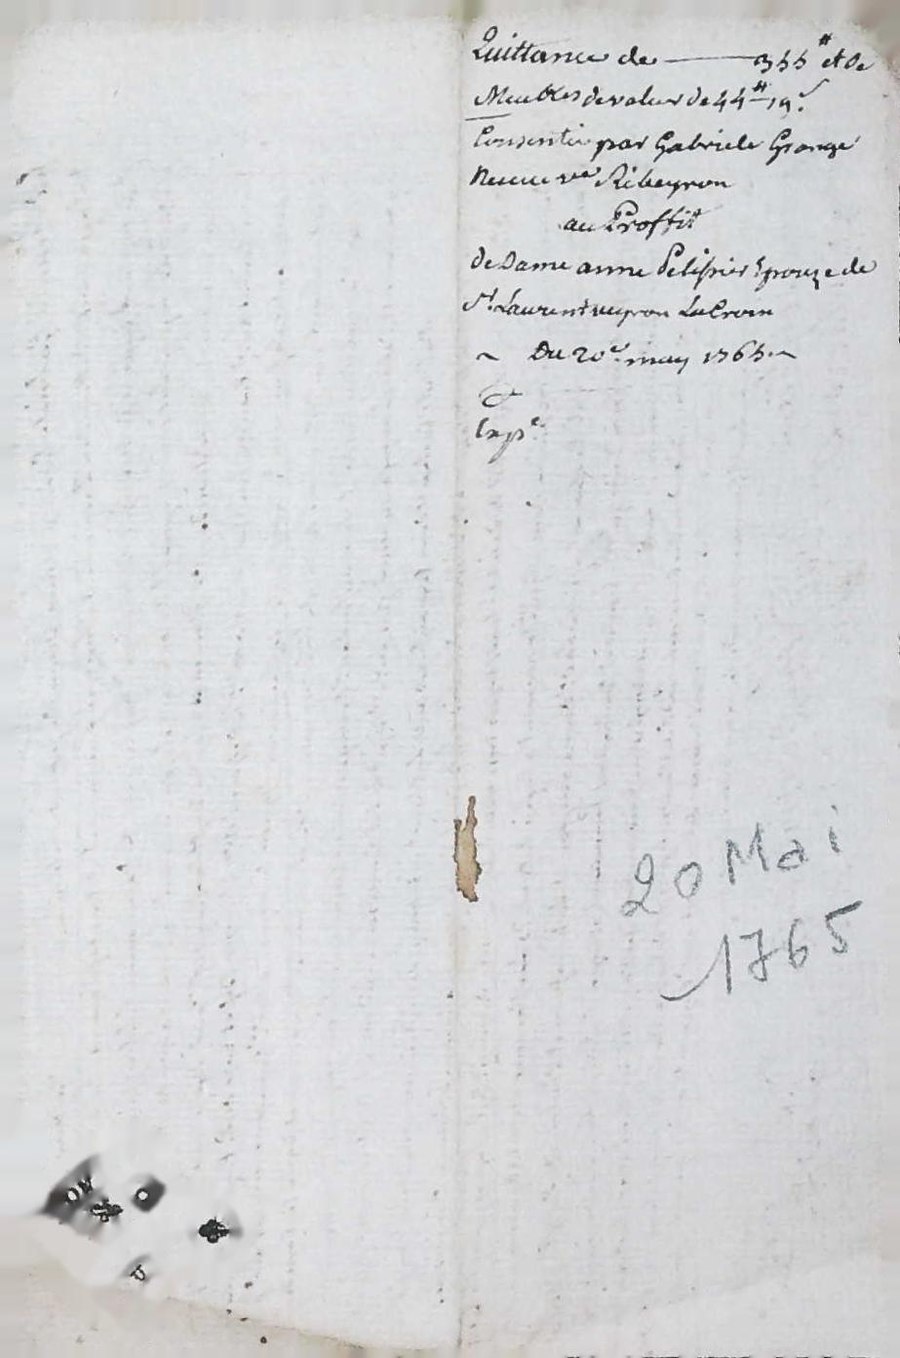 Quittance de ——— 355# et de
Meubles de valeur de 44# 19s
Consentie par Gabriele Grange
Neuve ve Ribeyron
au Proffit
de Dame anne Pelissier Epouze de
Sr. Laurent veyron LaCroix
~ Du 20e may 1765. ~
Expe
20 Mai
1765